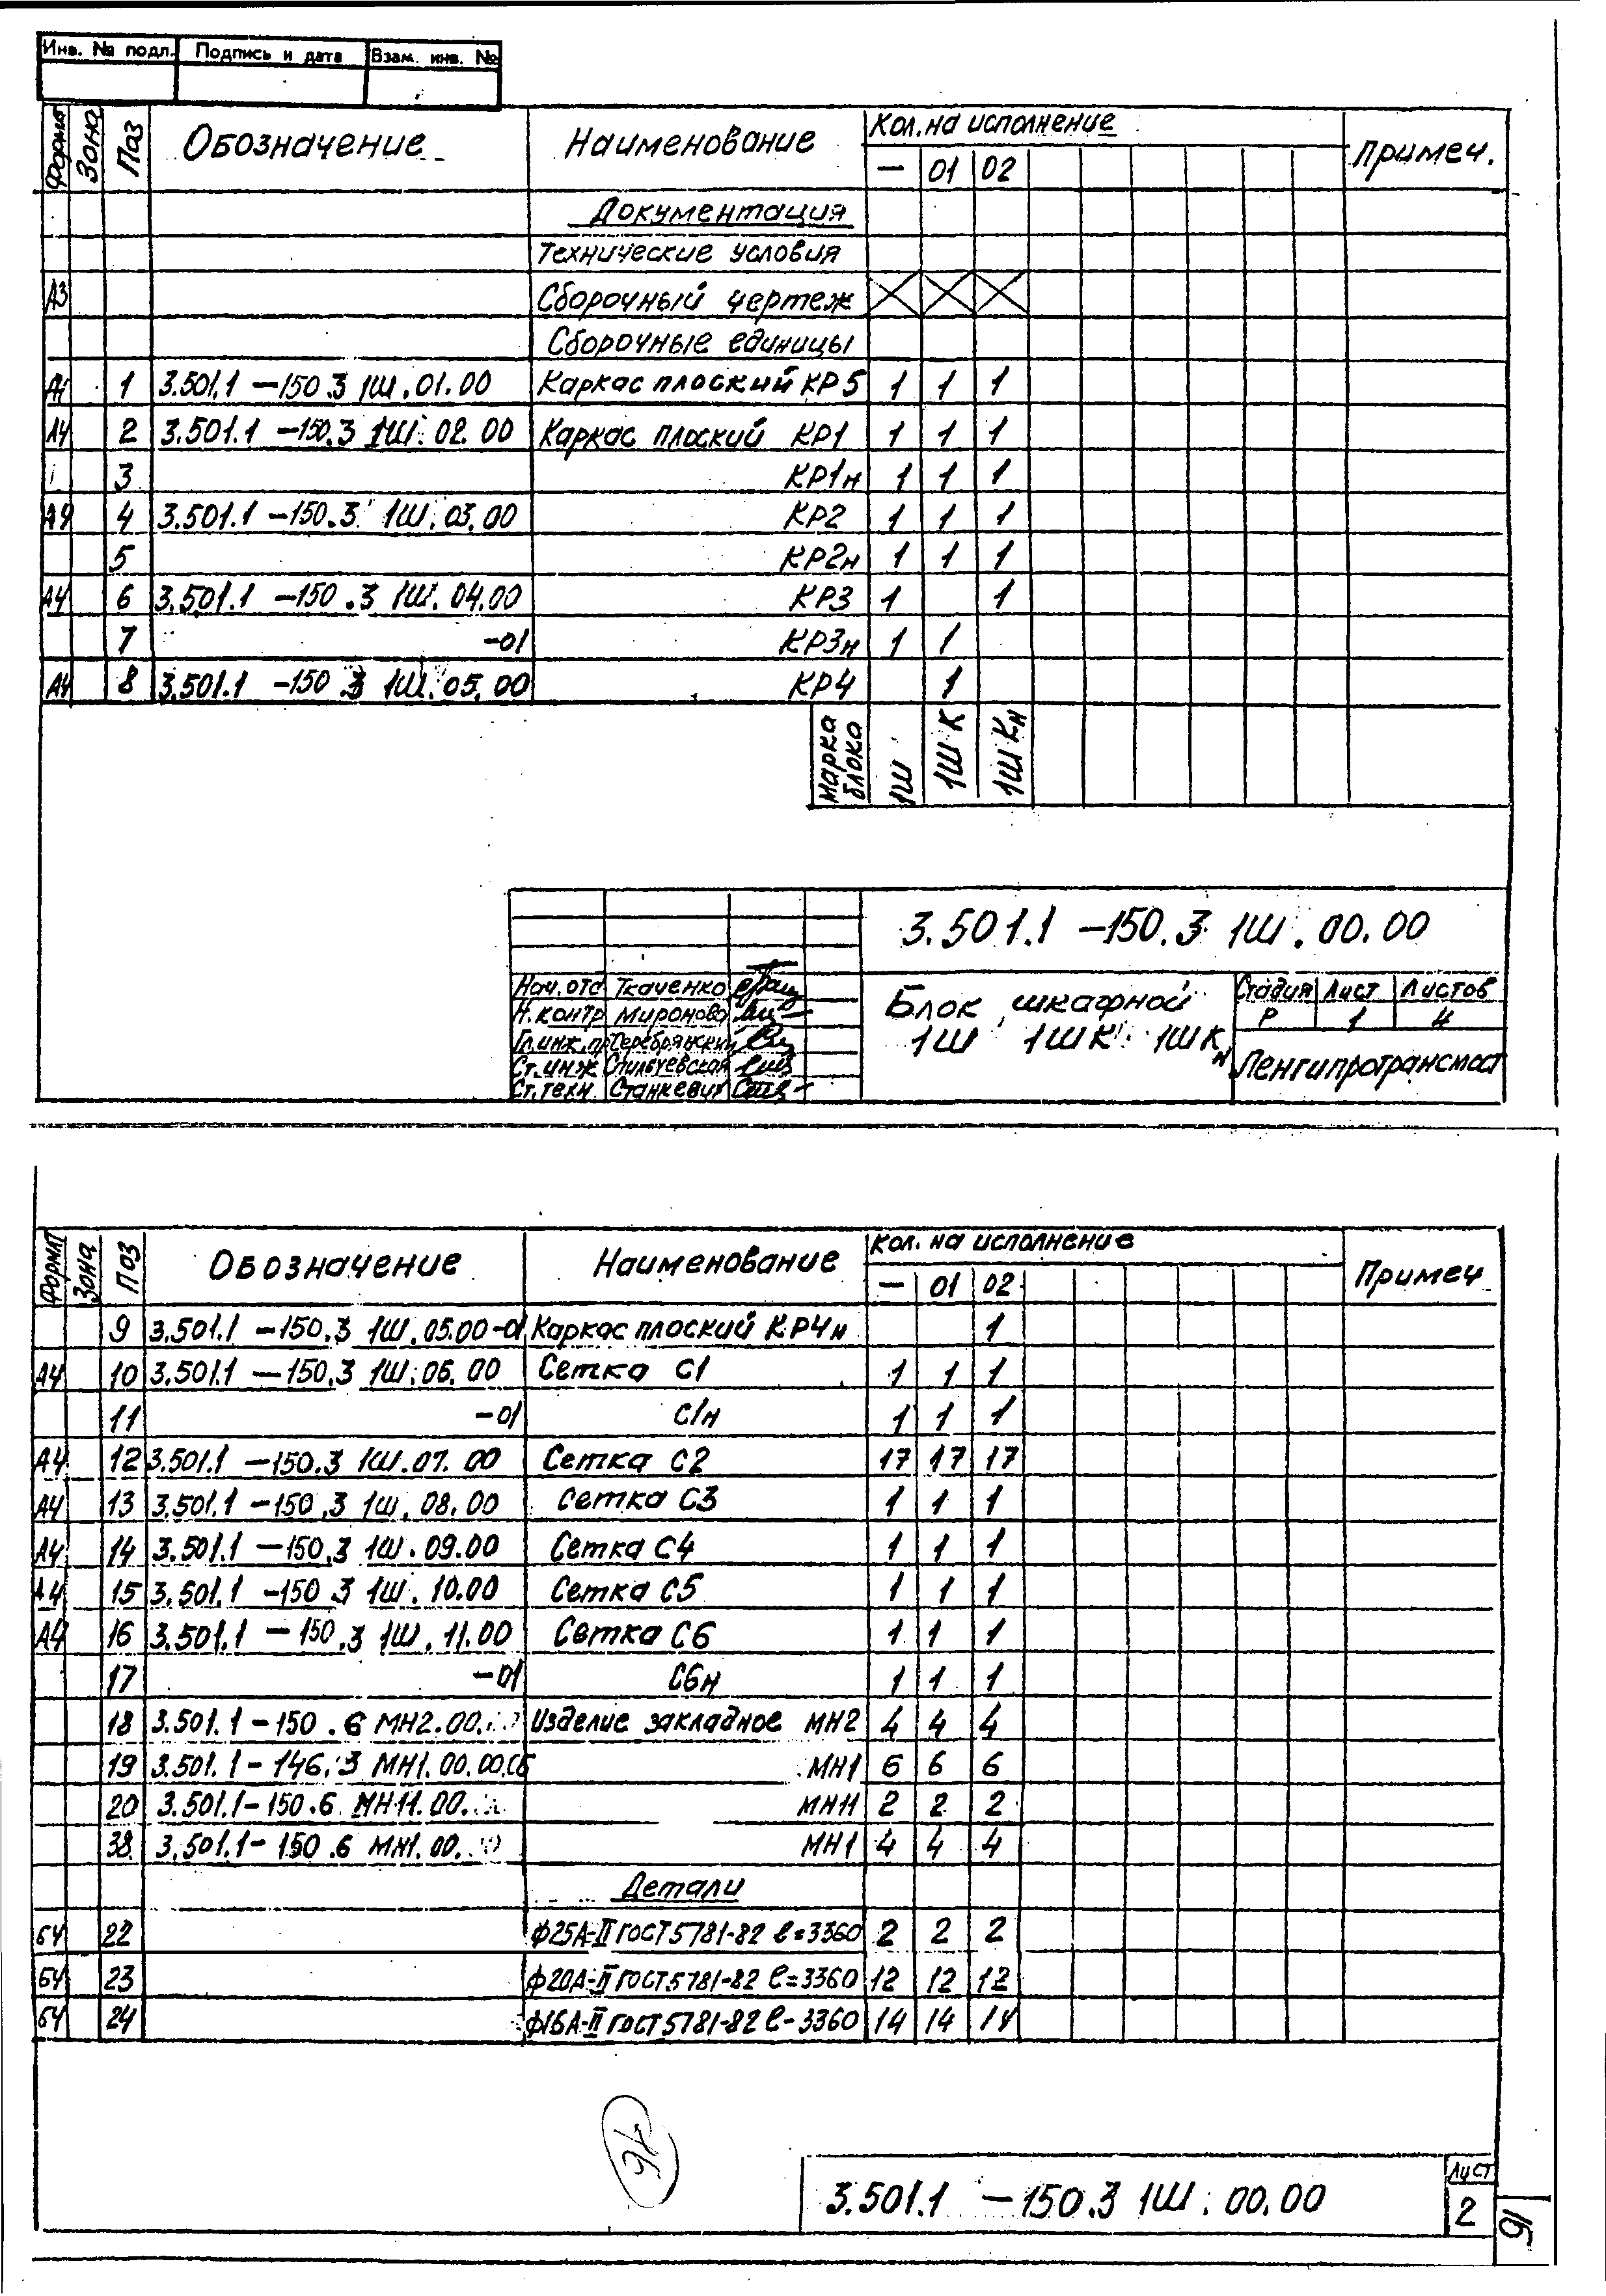 Инв. № подл. Подпись и дата Взам. инв. №
Форма Зона Поз Обозначение Наименование Кол. на исполнение Примеч.
— 01 02
Документация
Технические условия
А3 Сборочный чертеж
Сборочные единицы
А4 1 3.501.1 —150.3 1Ш.01.00 Каркас плоский КР5 1 1 1
А4 2 3.501.1 —150.3 1Ш.02.00 Каркас плоский КР1 1 1 1
3 КР1н 1 1 1
А4 4 3.501.1 —150.3 1Ш.03.00 КР2 1 1 1
5 КР2н 1 1 1
А4 6 3.501.1 —150.3 1Ш.04.00 КР3 1 1
7 —01 КР3н 1 1
А4 8 3.501.1 —150.3 1Ш.05.00 КР4 1
Марка блока 1Ш 1Ш К 1Ш Кн
3.501.1 —150.3 1Ш.00.00
Нач. отд Ткаченко
Н. контр Миронова
Гл. инж. пр Серебрянский
Ст. инж
Ст. техн. Станкевич
Блок шкафной
1Ш 1ШК 1ШКн
Стадия Лист Листов
Р 1 4
Ленгипротрансмост
Формат Зона Поз Обозначение Наименование Кол. на исполнение Примеч
— 01 02
9 3.501.1 —150.3 1Ш.05.00-01 Каркас плоский КР4н 1
А4 10 3.501.1 —150.3 1Ш.06.00 Сетка С1 1 1 1
11 —01 С1н 1 1 1
А4 12 3.501.1 —150.3 1Ш.07.00 Сетка С2 17 17 17
А4 13 3.501.1 —150.3 1Ш.08.00 Сетка С3 1 1 1
А4 14 3.501.1 —150.3 1Ш.09.00 Сетка С4 1 1 1
А4 15 3.501.1 —150.3 1Ш.10.00 Сетка С5 1 1 1
А4 16 3.501.1 —150.3 1Ш.11.00 Сетка С6 1 1 1
17 —01 С6н 1 1 1
18 3.501.1—150.6 МН2.00. Изделие закладное МН2 4 4 4
19 3.501.1—146.3 МН1.00.00.СБ МН1 6 6 6
20 3.501.1—150.6 МН11.00. МН11 2 2 2
38. 3.501.1—150.6 МН1.00. МН1 4 4 4
Детали
БЧ 22 ф25А-II ГОСТ 5781-82 ℓ=3360 2 2 2
БЧ 23 ф20А-II ГОСТ 5781-82 ℓ=3360 12 12 12
БЧ 24 ф16А-II ГОСТ 5781-82 ℓ-3360 14 14 14
3.501.1 —150.3 1Ш.00.00
Лист
2
91